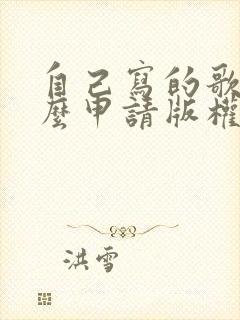 自己寫的歌
麼申請版權
洪雪